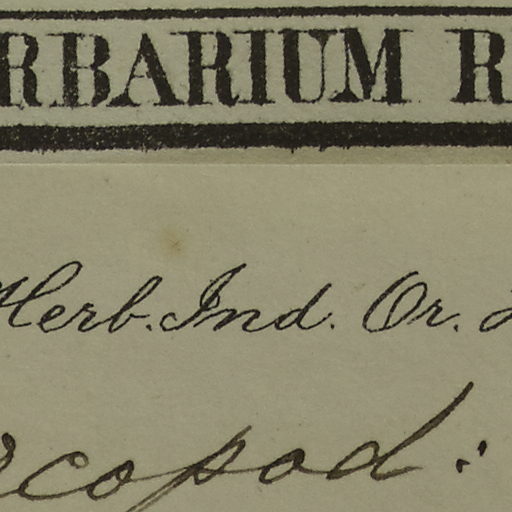 RBARIUM R
Herb. Ind. Or.
rcopod: